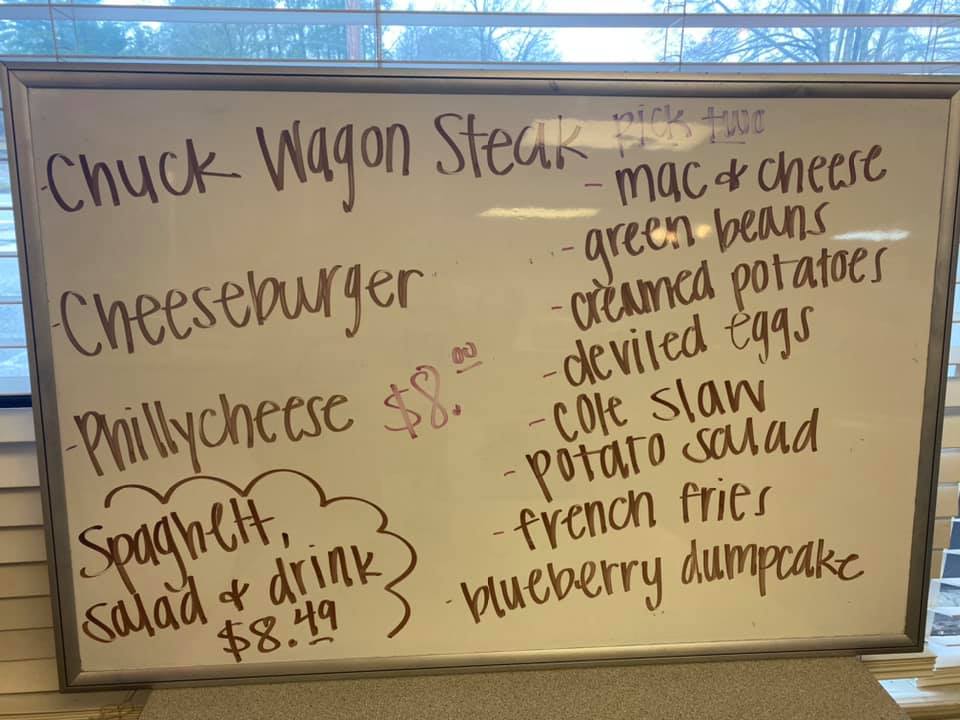 - Chuck Wagon Steak
- Cheeseburger
- Phillycheese $8.00
Spaghetti,
salad & drink
$8.49
pick two
- mac & cheese
- green beans
- creamed potatoes
- deviled eggs
- cole slaw
- potato salad
- french fries
- blueberry dumpcake